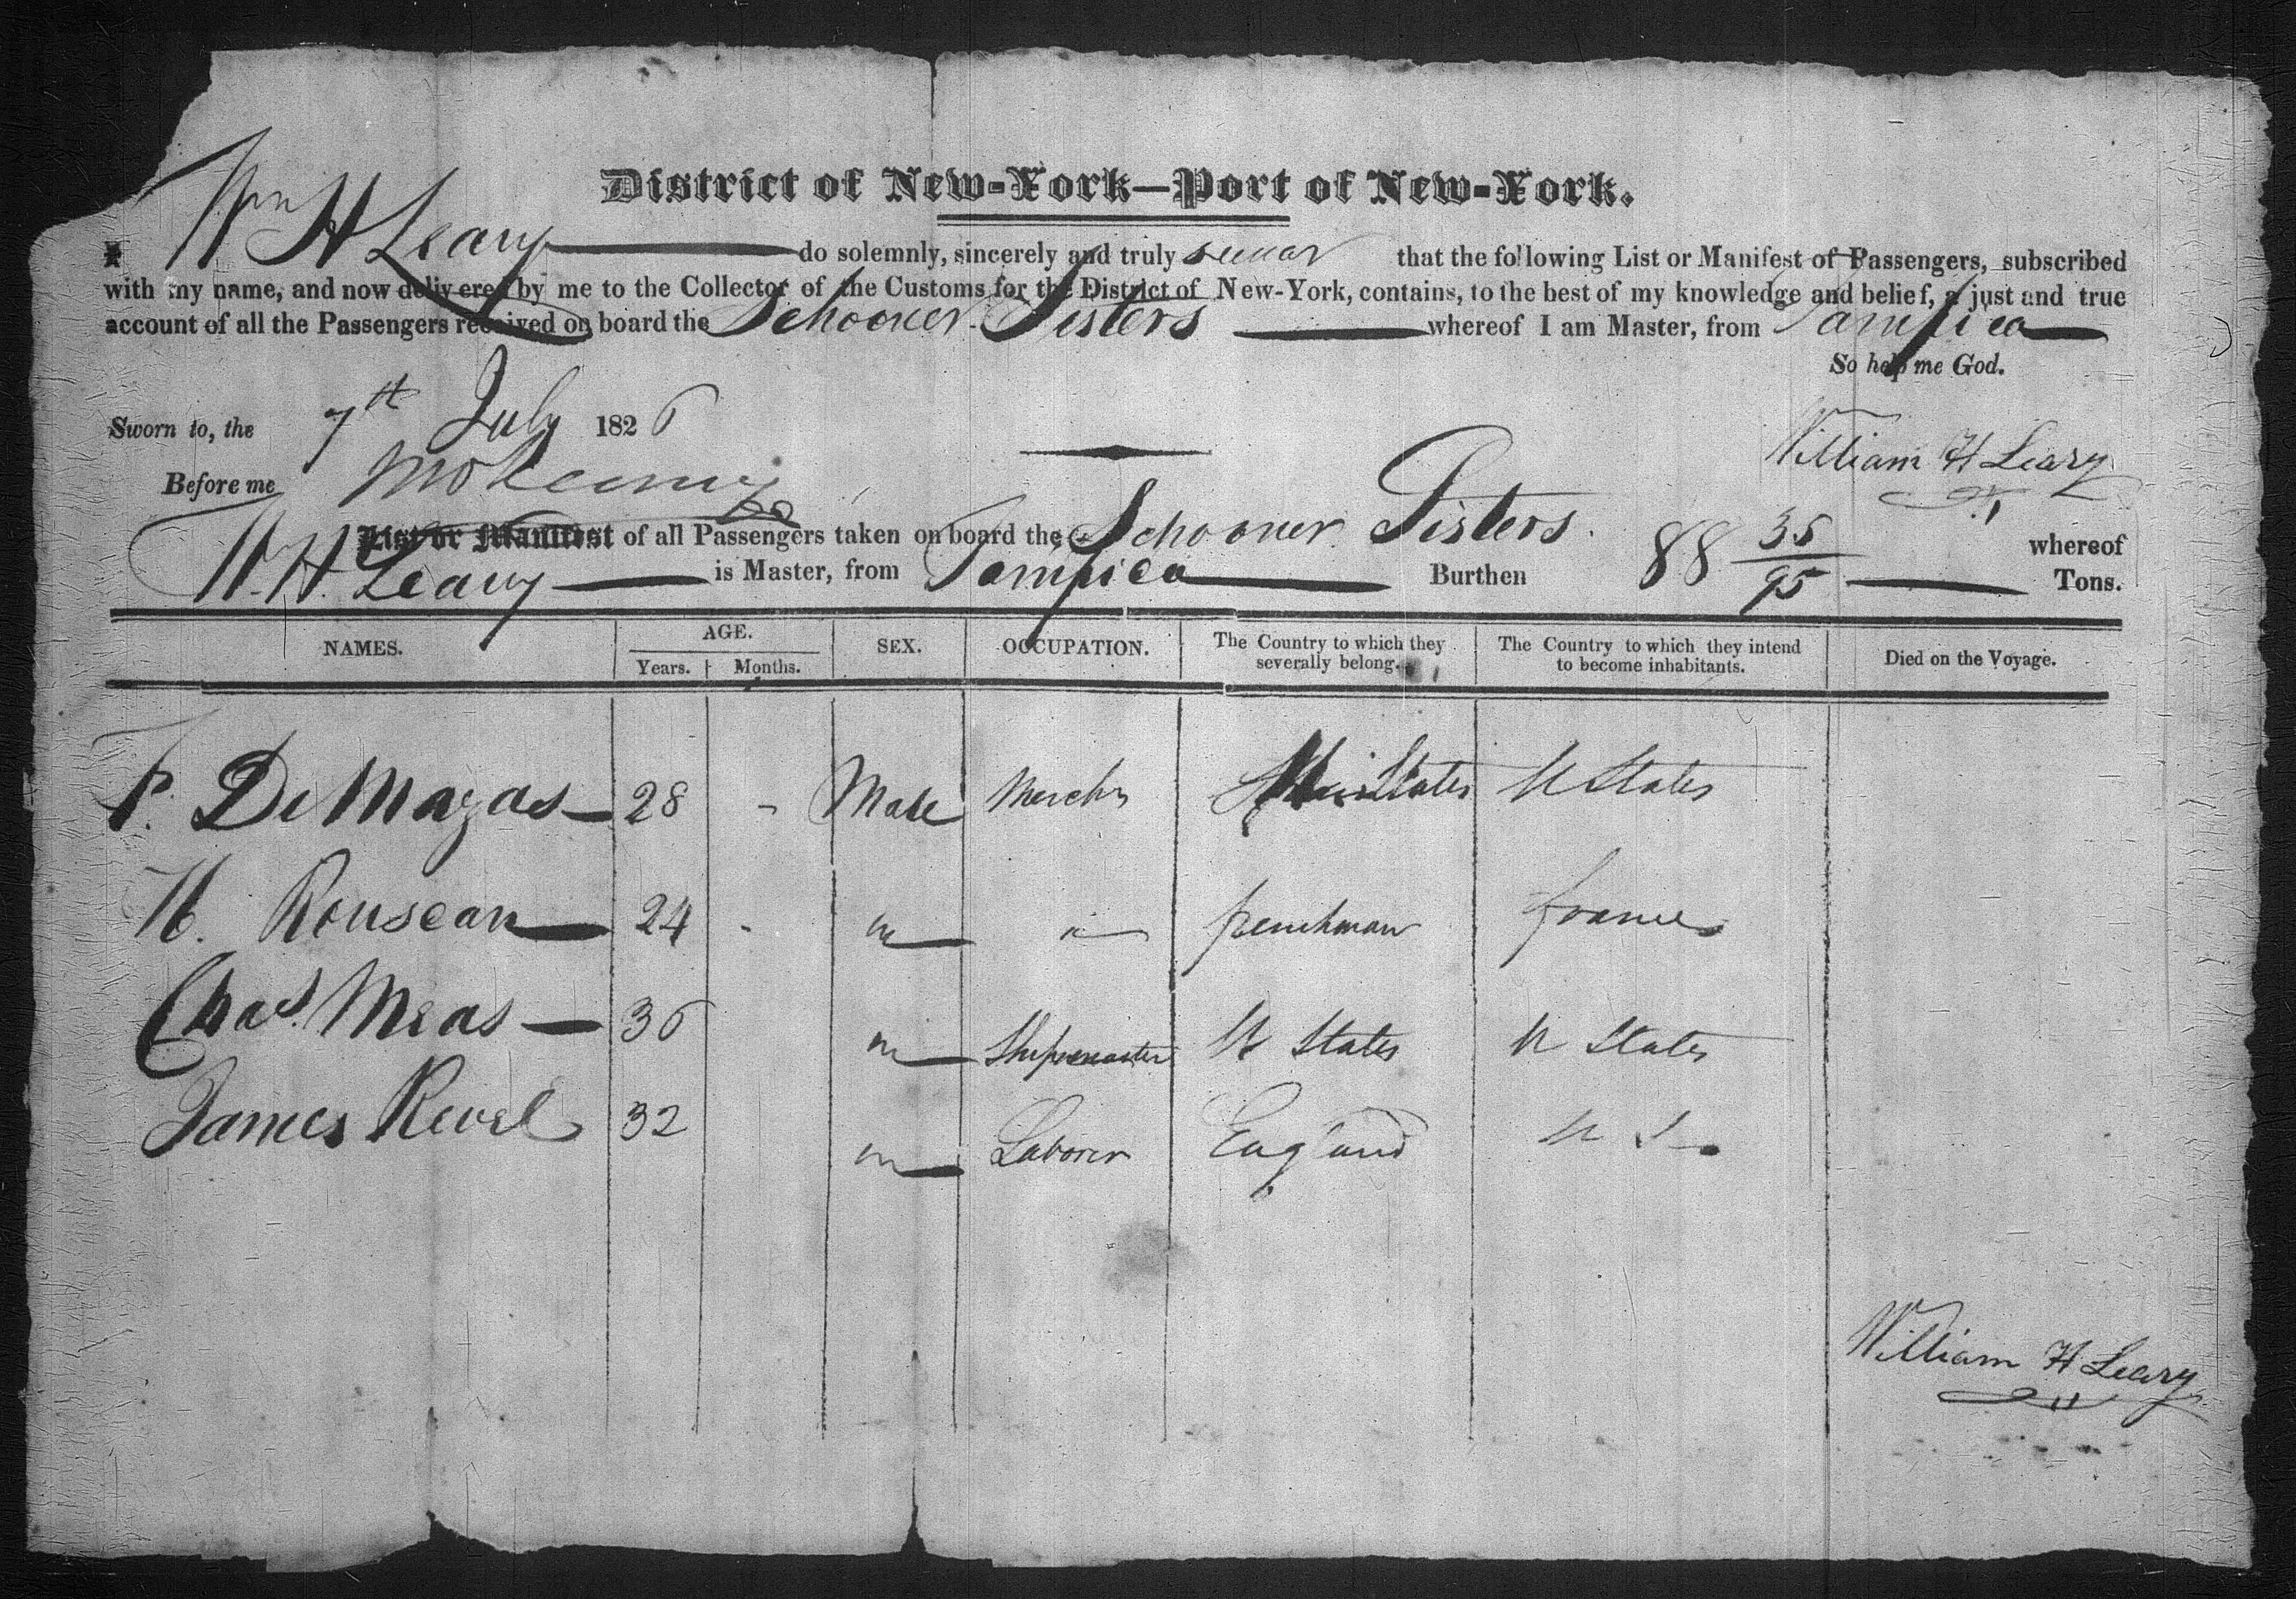 District of New-York—Port of New-York.
I Wm H Leary do solemnly, sincerely and truly swear that the following List or Manifest of Passengers, subscribed
with my name, and now delivered by me to the Collector of the Customs for the District of New-York, contains, to the best of my knowledge and belief, a just and true
account of all the Passengers received on board the Schooner Sisters whereof I am Master, from Tampico
So help me God.
Sworn to, the 7th July 1826
William H Leary
Before me
List or Manifest of all Passengers taken on board the Schooner Sisters whereof
W. H. Leary is Master, from Tampico Burthen 88 35/95 Tons.
NAMES. AGE. Years. Months. SEX. OCCUPATION. The Country to which they severally belong. The Country to which they intend to become inhabitants. Died on the Voyage.
F. De Mazas 28 - Male Mercht States U States
Rouseau 24 - " " frenchman france
Chas Meas 36 " Shipmaster U States U States
James Revel 32 " Laborer England U S
William H Leary